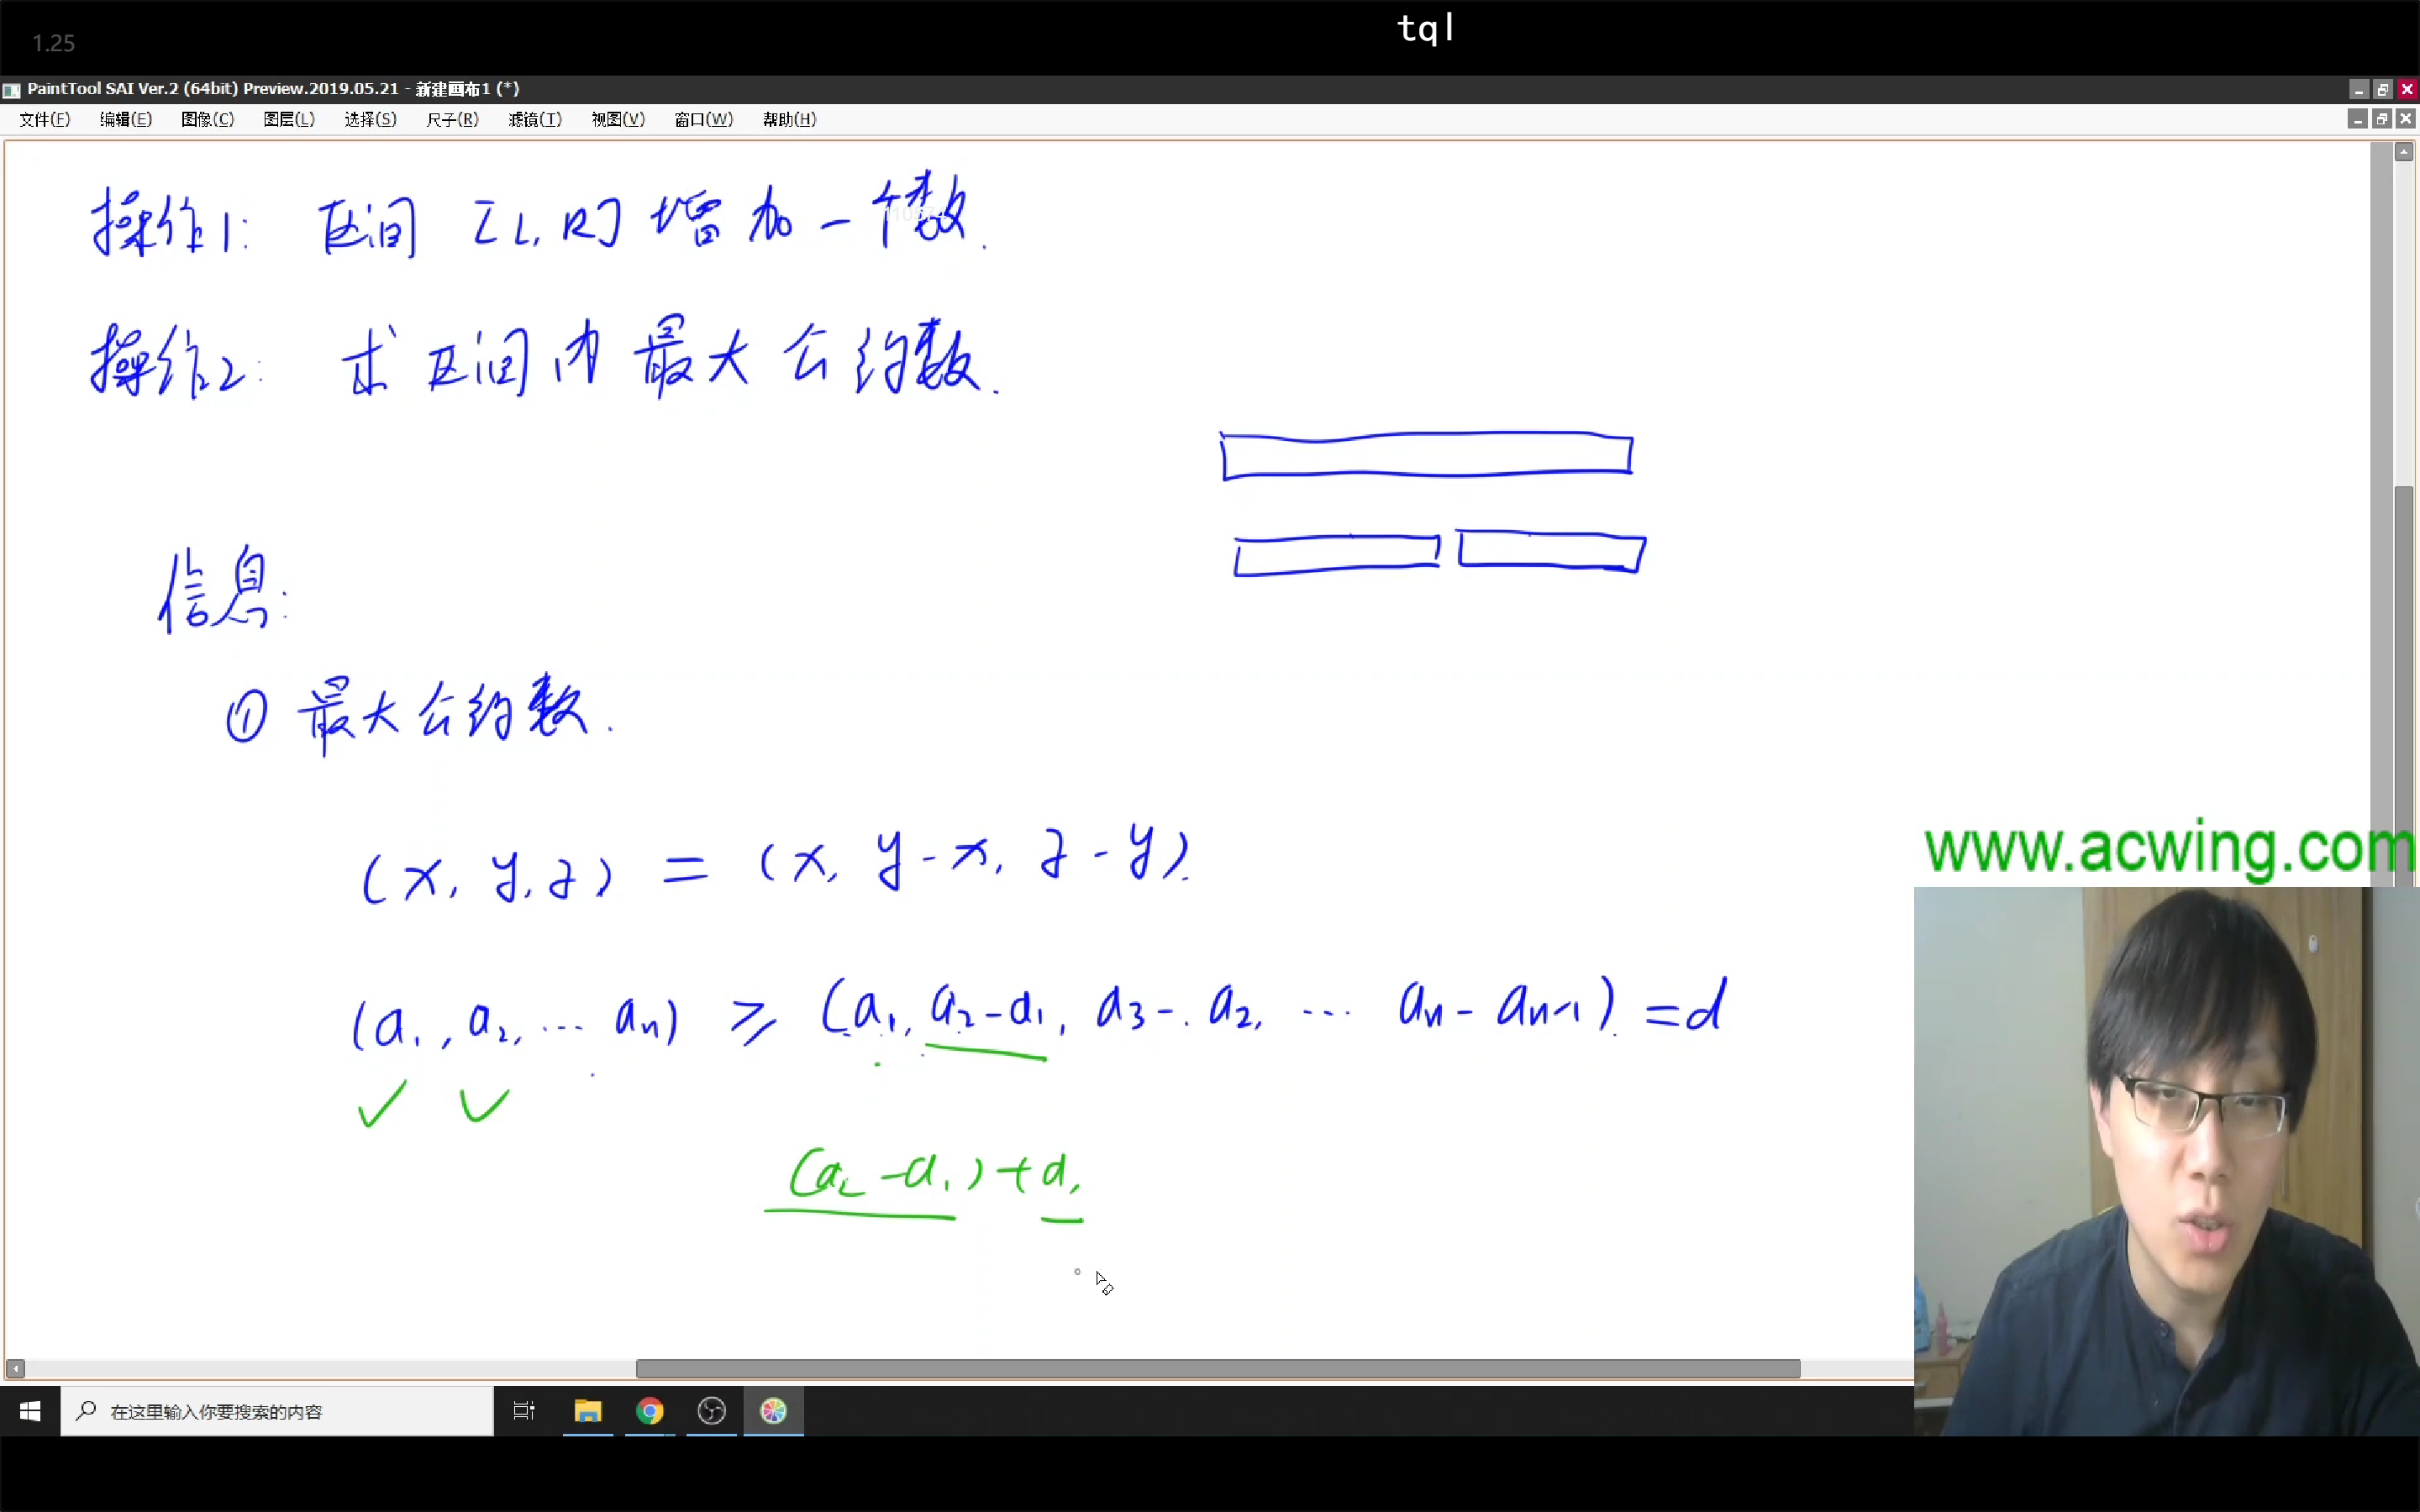 tql
1.25
PaintTool SAI Ver.2 (64bit) Preview.2019.05.21 - 新建画布1 (*)
文件(F) 编辑(E) 图像(C) 图层(L) 选择(S) 尺子(R) 滤镜(T) 视图(V) 窗口(W) 帮助(H)
操作1: 区间 [L, R] 增加一个数.
操作2: 求区间内最大公约数.
信息:
① 最大公约数.
(x, y, z) = (x, y-x, z-y).
(a1, a2, ... an) ≥ (a1, a2-a1, a3-a2, ... an-an-1) = d
(a2-a1)+a1
www.acwing.com
在这里输入你要搜索的内容